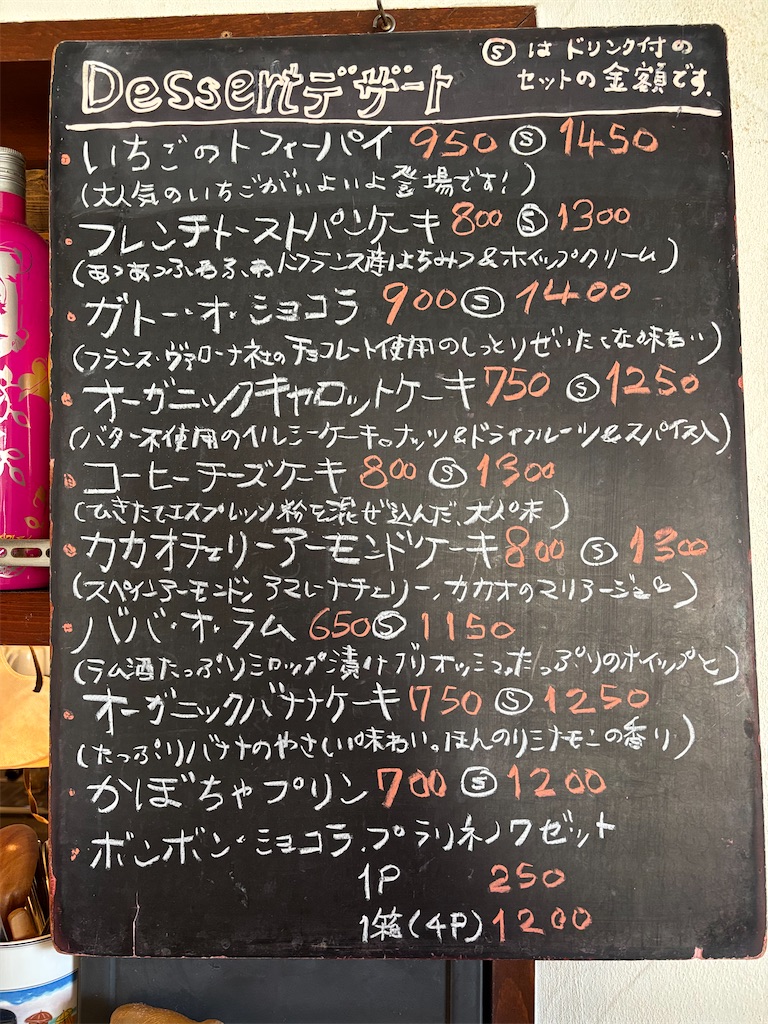 Dessertデザート
Ⓢは ドリンク付の
セットの金額です.
いちごのトフィーパイ 950 Ⓢ 1450
(大人気のいちごがいよいよ登場です!)
フレンチトーストパンケーキ 800 Ⓢ 1300
(あつあつふわふわ フランス産はちみつ&ホイップクリーム)
ガトー・オ・ショコラ 900 Ⓢ 1400
(フランス・ヴァローナ社のチョコレート使用のしっとりぜいたくな味わい)
オーガニックキャロットケーキ 750 Ⓢ 1250
(バター不使用のヘルシーケーキ。ナッツ&ドライフルーツ&スパイス入)
コーヒーチーズケーキ 800 Ⓢ 1300
(ひきたてエスプレッソ粉を混ぜ込んだ、大人味)
カカオチェリーアーモンドケーキ 800 Ⓢ 1300
(スペインアーモンド、アマレーナチェリー、カカオのマリアージュ)
ババ・オ・ラム 650 Ⓢ 1150
(ラム酒たっぷりシロップ漬けブリオッシュ。たっぷりのホイップと)
オーガニックバナナケーキ 750 Ⓢ 1250
(たっぷりバナナのやさしい味わい。ほんのりシナモンの香り)
かぼちゃプリン 700 Ⓢ 1200
ボンボン・ショコラ.プラリネノワゼット
1P 250
1箱(4P) 1200